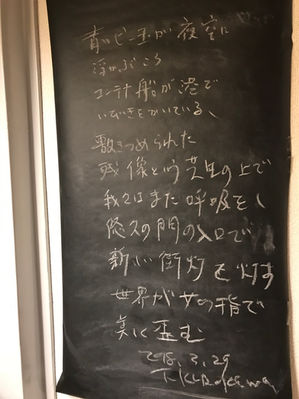 青いビー玉が夜空に
浮かぶころ
コンテナ船が港で
いびきをかいている、
敷きつめられた
残像という芝生の上で
我々はまた呼吸をし
悠久の門の入口で
新しい街灯を灯す
世界が女の指で
美しく歪む
2018.3.29
T.KUROKAWA